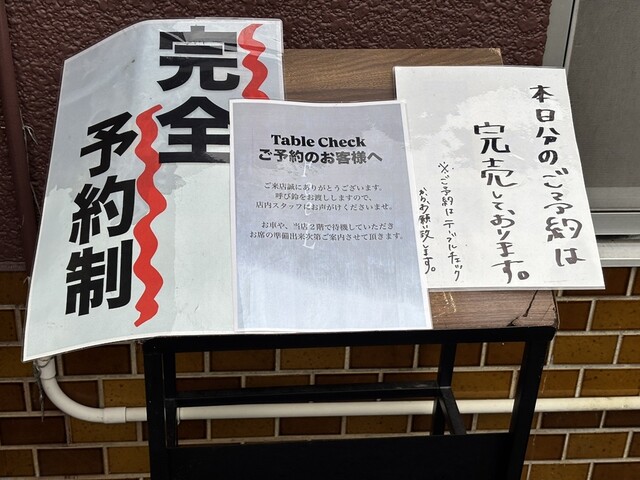 完全
予約制
Table Check
ご予約のお客様へ
ご来店誠にありがとうございます。
呼び鈴をお渡ししますので、
店内スタッフにお声がけくださいませ。
お車や、当店２階で待機していただき
お席の準備出来次第ご案内させて頂きます。
本日分のご予約は
完売しております。
※ご予約はテーブルチェック
からお願い致します。